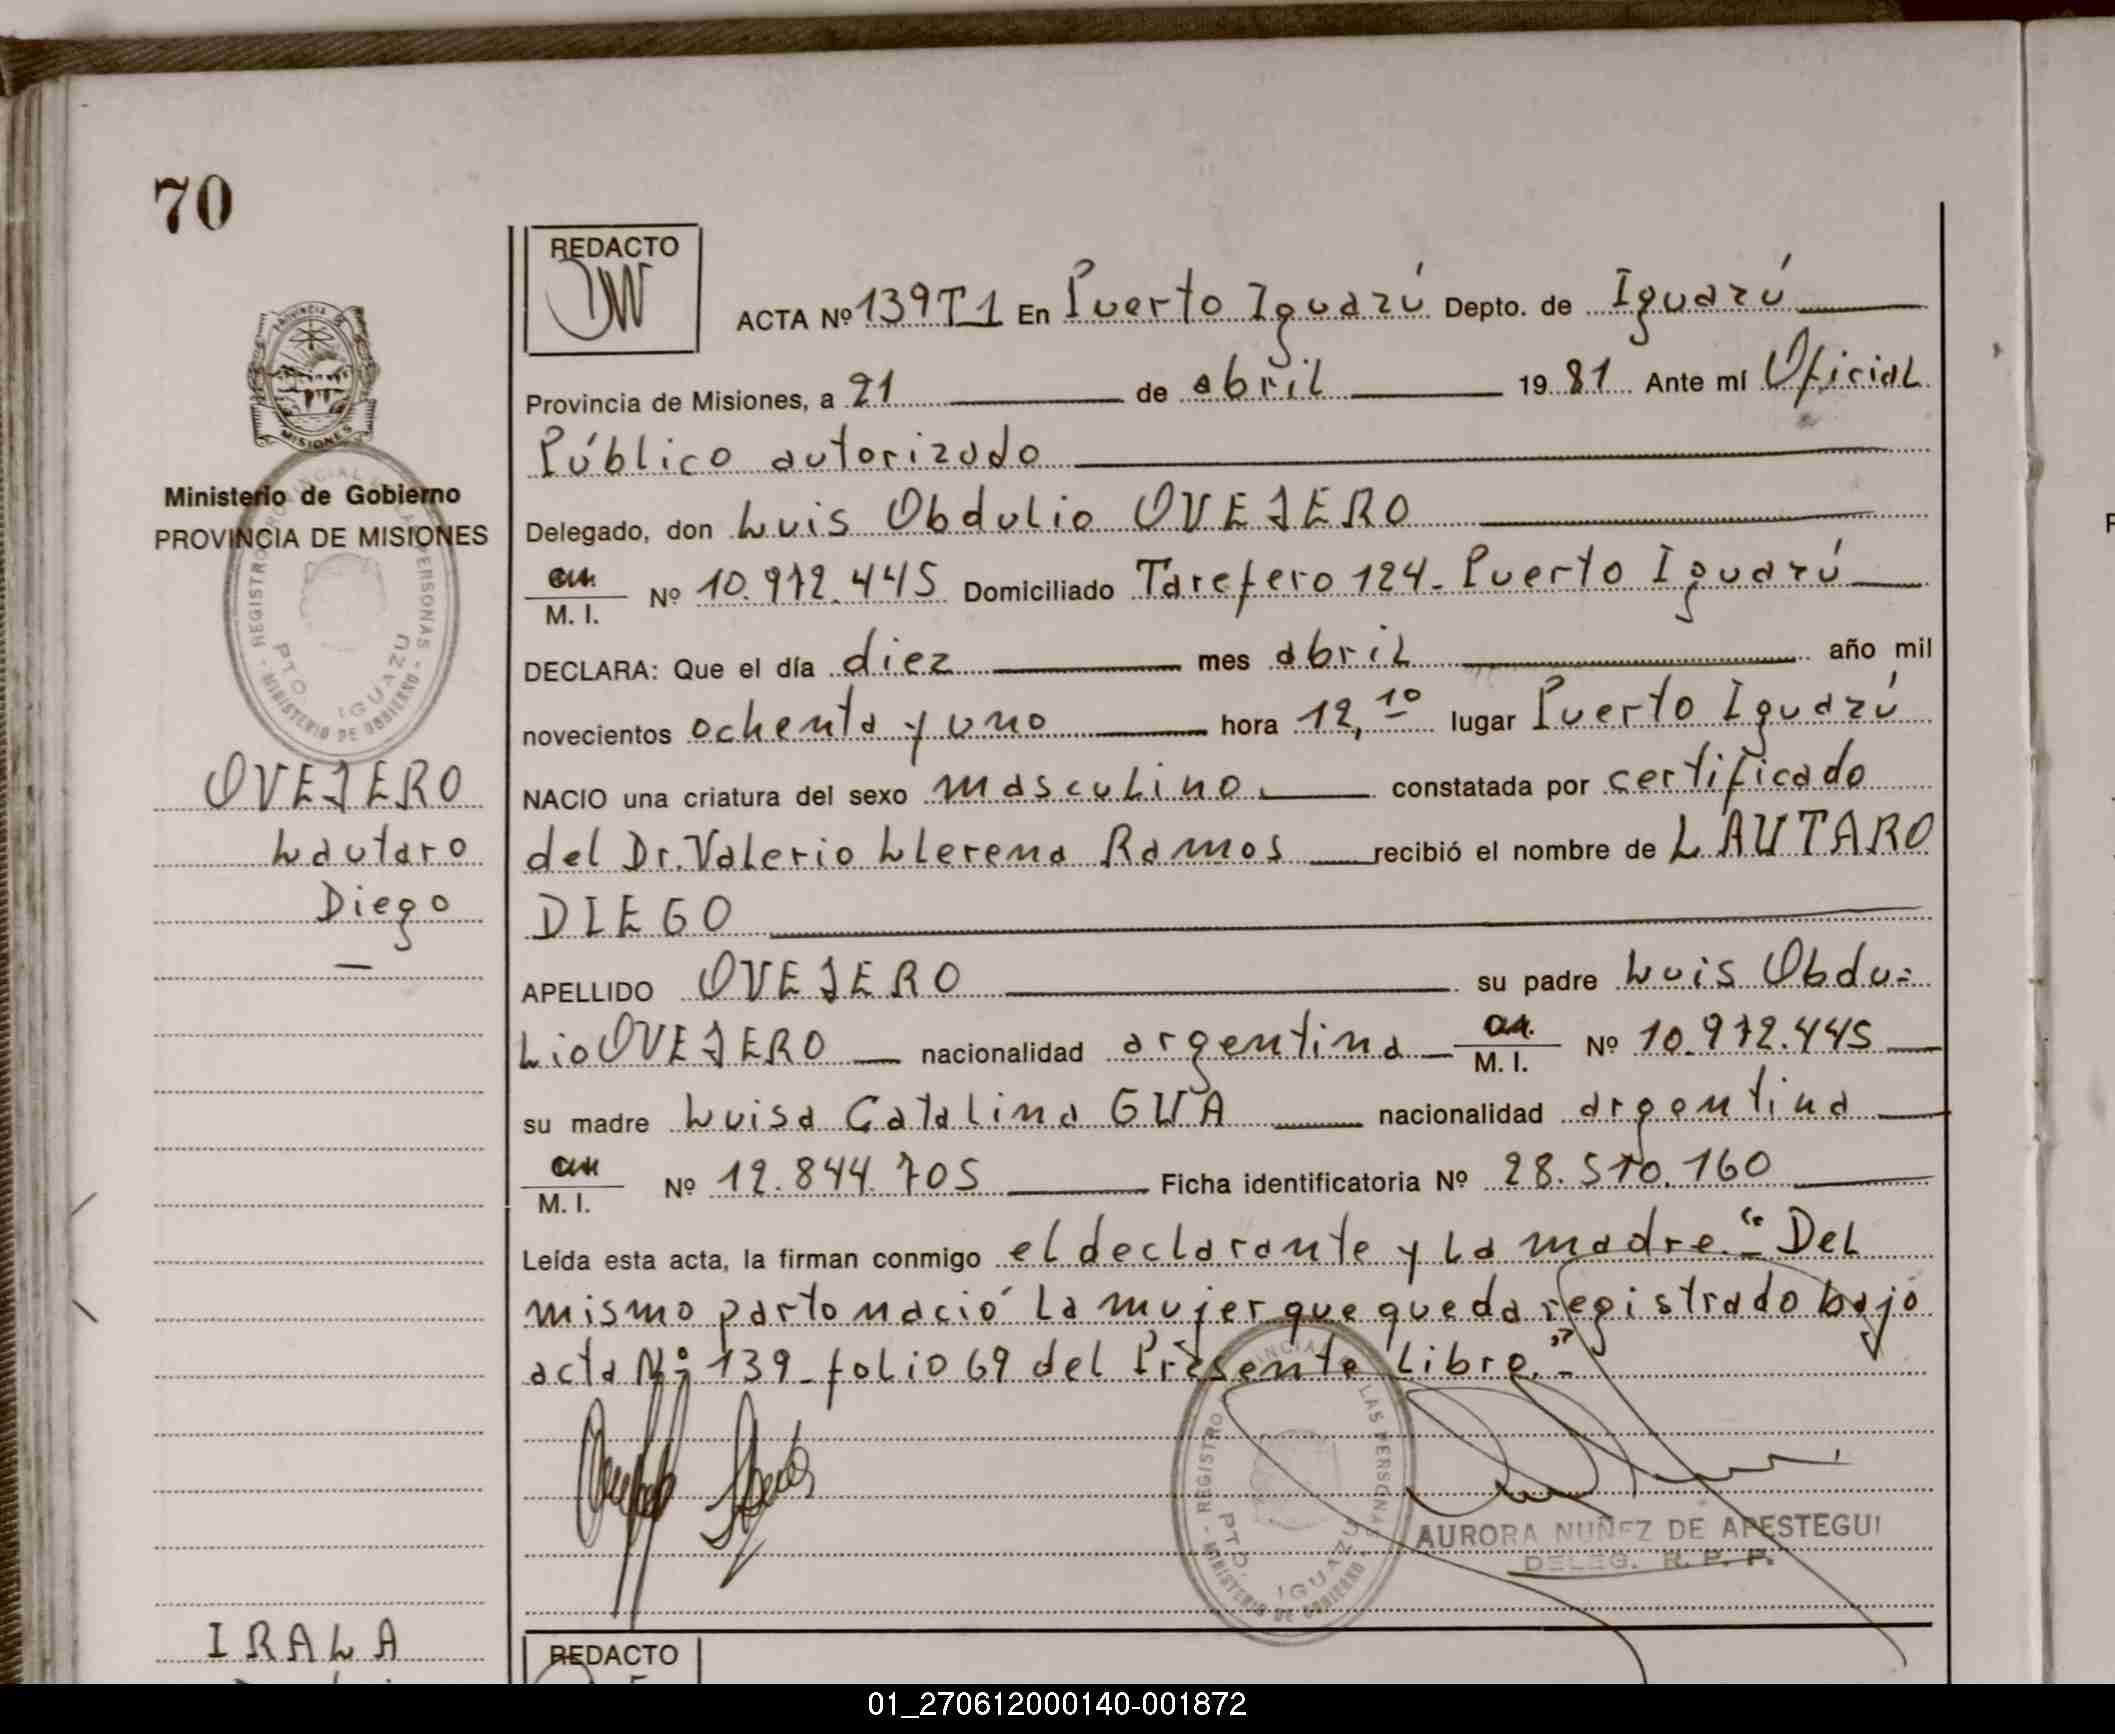 70
REDACTO
ACTA Nº 139T1 En Puerto Iguazú Depto. de Iguazú
Provincia de Misiones, a 21 de abril 1981 Ante mí Oficial
Público autorizado
Delegado, don Luis Obdulio OVEJERO
M. I. Nº 10.972.445 Domiciliado Tarefero 124- Puerto Iguazú
DECLARA: Que el día diez mes abril año mil
novecientos ochenta y uno hora 12,10 lugar Puerto Iguazú
NACIO una criatura del sexo masculino. constatada por certificado
del Dr. Valerio Llerena Ramos recibió el nombre de LAUTARO
DIEGO
APELLIDO OVEJERO su padre Luis Obdu=
lio OVEJERO nacionalidad argentina M. I. Nº 10.972.445
su madre Luisa Catalina GUA nacionalidad argentina
M. I. Nº 12.844.705 Ficha identificatoria Nº 28.510.160
Leída esta acta, la firman conmigo el declarante y la madre.- "Del
mismo parto nació la mujer que queda registrado bajo
acta Nº 139- folio 69 del Presente Libro."-
REGISTRO PROVINCIAL DE LAS PERSONAS
PTO. IGUAZU
MINISTERIO DE GOBIERNO
AURORA NUÑEZ DE APESTEGUI
DELEG. R. P. P.
PROVINCIA DE
MISIONES
Ministerio de Gobierno
PROVINCIA DE MISIONES
REGISTRO PROVINCIAL DE LAS PERSONAS
PTO IGUAZU
MINISTERIO DE GOBIERNO
OVEJERO
Lautaro
Diego
IRALA
REDACTO
01_270612000140-001872